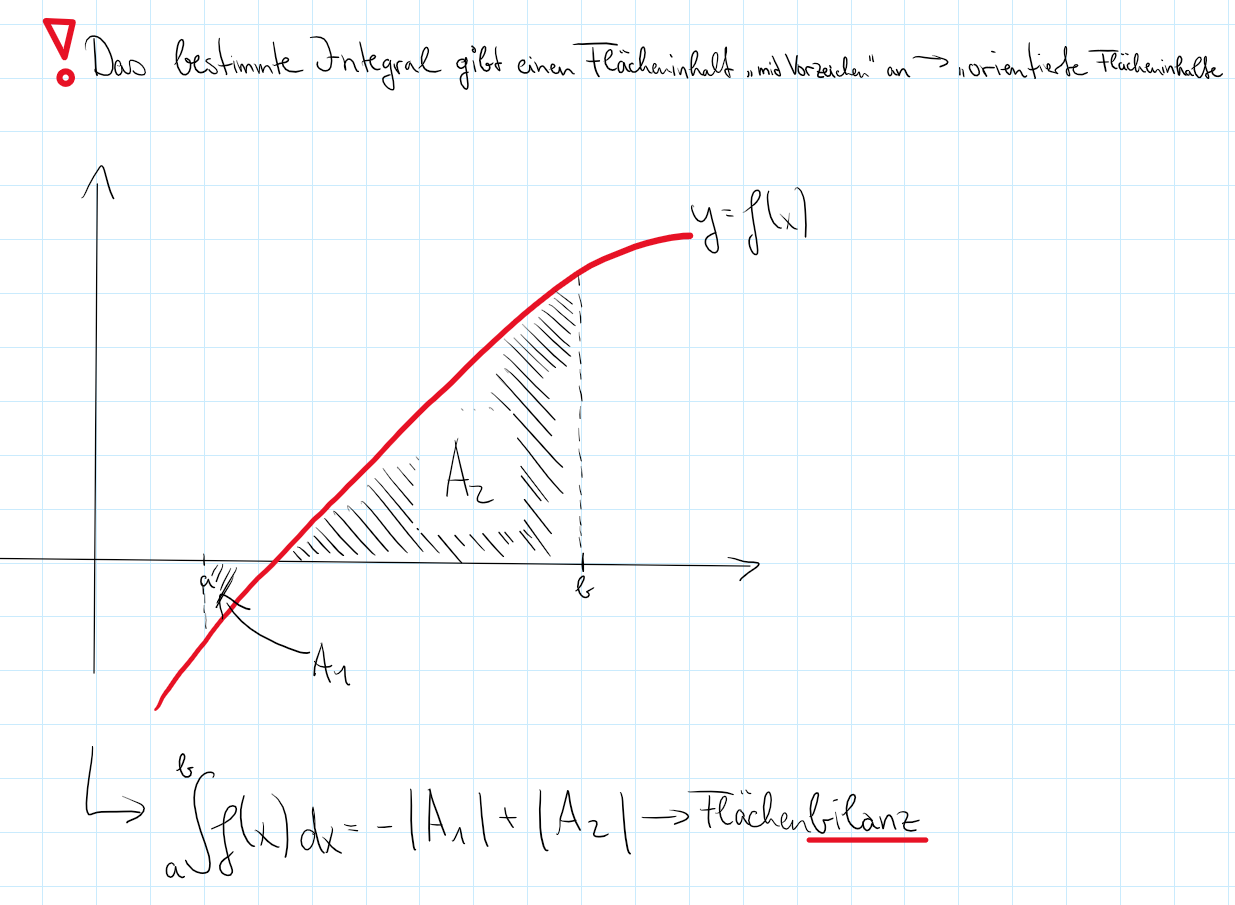 ! Das bestimmte Integral gibt einen Flächeninhalt „mit Vorzeichen" an → „orientierte Flächeninhalte
y = f(x)
A₂
a
b
A₁
∫ₐᵇ f(x) dx = - |A₁| + |A₂| → Flächenbilanz